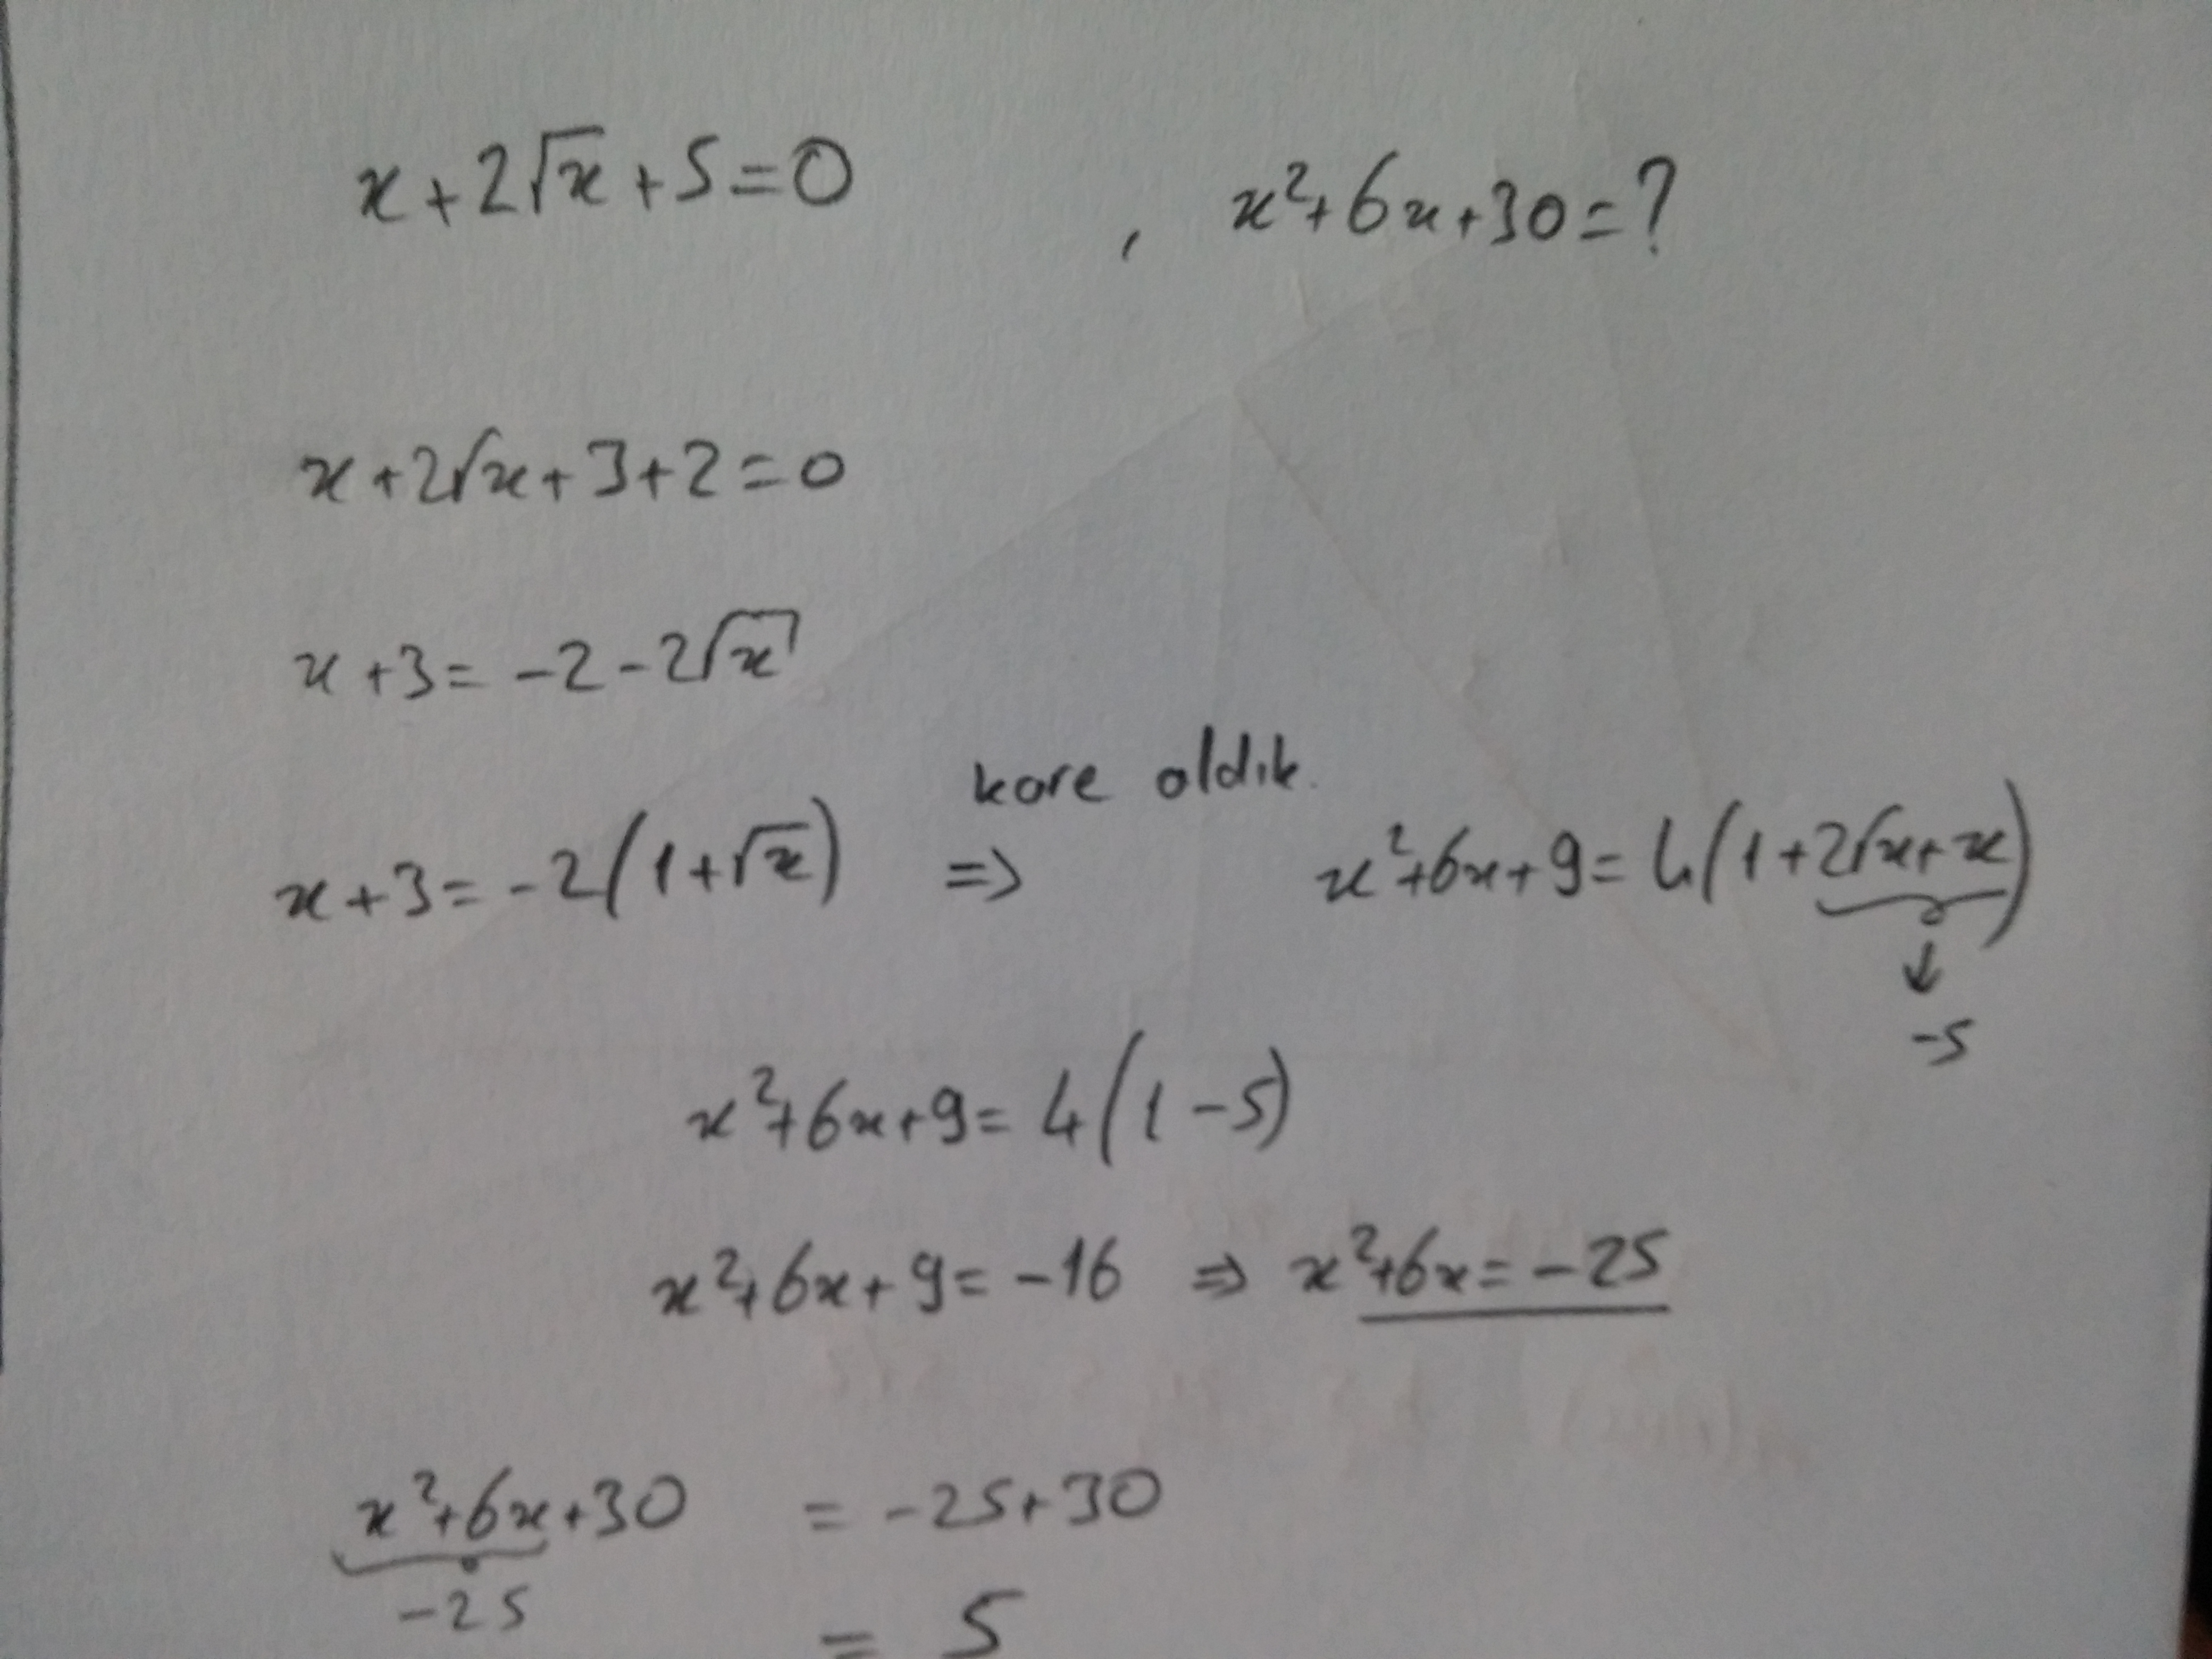 x+2√x+5=0 , x²+6x+30=?
x+2√x+3+2=0
x+3=-2-2√x
kare aldık.
x+3=-2(1+√x) => x²+6x+9=4(1+2√x+x)
↓
-5
x²+6x+9=4(1-5)
x²+6x+9=-16 => x²+6x=-25
x²+6x+30 = -25+30
-25
= 5